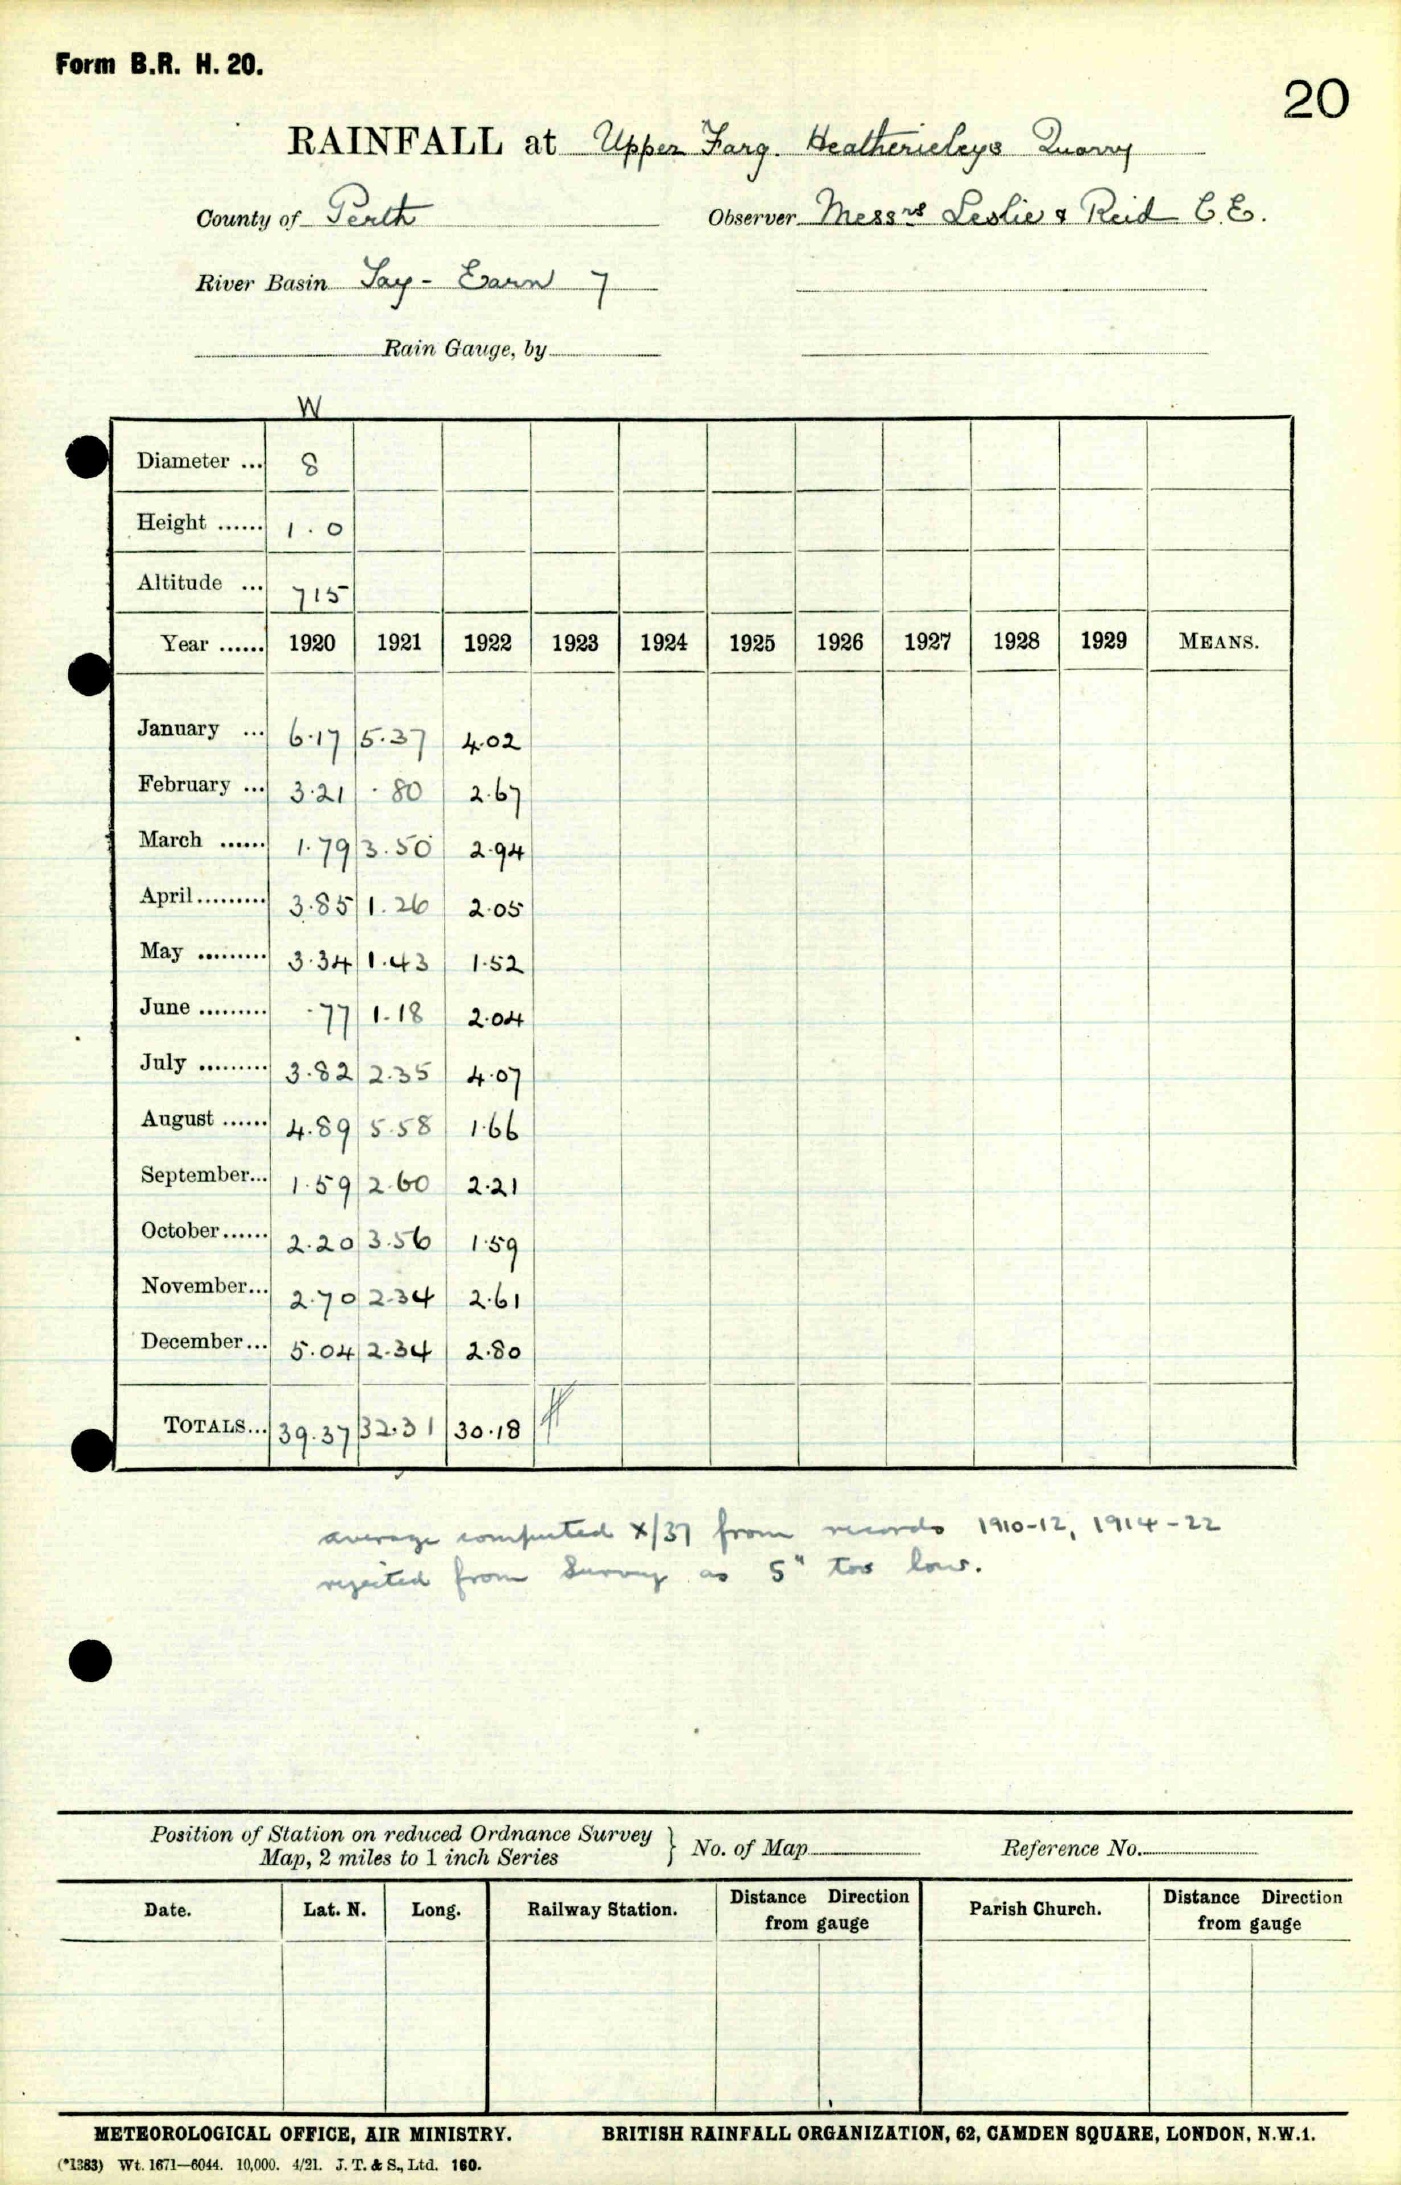 Form B.R. H. 20.
20
RAINFALL at Upper Farg. Heatherieleys Quarry
County of Perth Observer Messrs Leslie & Reid C.E.
River Basin Tay - Earn 7
Rain Gauge, by
W
Diameter ... 8
Height ...... 1.0
Altitude ... 715
Year ...... 1920 1921 1922 1923 1924 1925 1926 1927 1928 1929 MEANS.
January ... 6.17 5.37 4.02
February ... 3.21 .80 2.67
March ...... 1.79 3.50 2.94
April......... 3.85 1.26 2.05
May ......... 3.34 1.43 1.52
June ......... .77 1.18 2.04
July ......... 3.82 2.35 4.07
August ...... 4.89 5.58 1.66
September... 1.59 2.60 2.21
October...... 2.20 3.56 1.59
November... 2.70 2.34 2.61
December... 5.04 2.34 2.80
TOTALS... 39.37 32.31 30.18
average computed X/37 from records 1910-12, 1914-22
rejected from Survey as 5" too low.
Position of Station on reduced Ordnance Survey
Map, 2 miles to 1 inch Series } No. of Map Reference No.
Date. Lat. N. Long. Railway Station. Distance Direction from gauge Parish Church. Distance Direction from gauge
METEOROLOGICAL OFFICE, AIR MINISTRY. BRITISH RAINFALL ORGANIZATION, 62, CAMDEN SQUARE, LONDON, N.W.1.
(*1383) Wt. 1671—6044. 10,000. 4/21. J. T. & S., Ltd. 160.